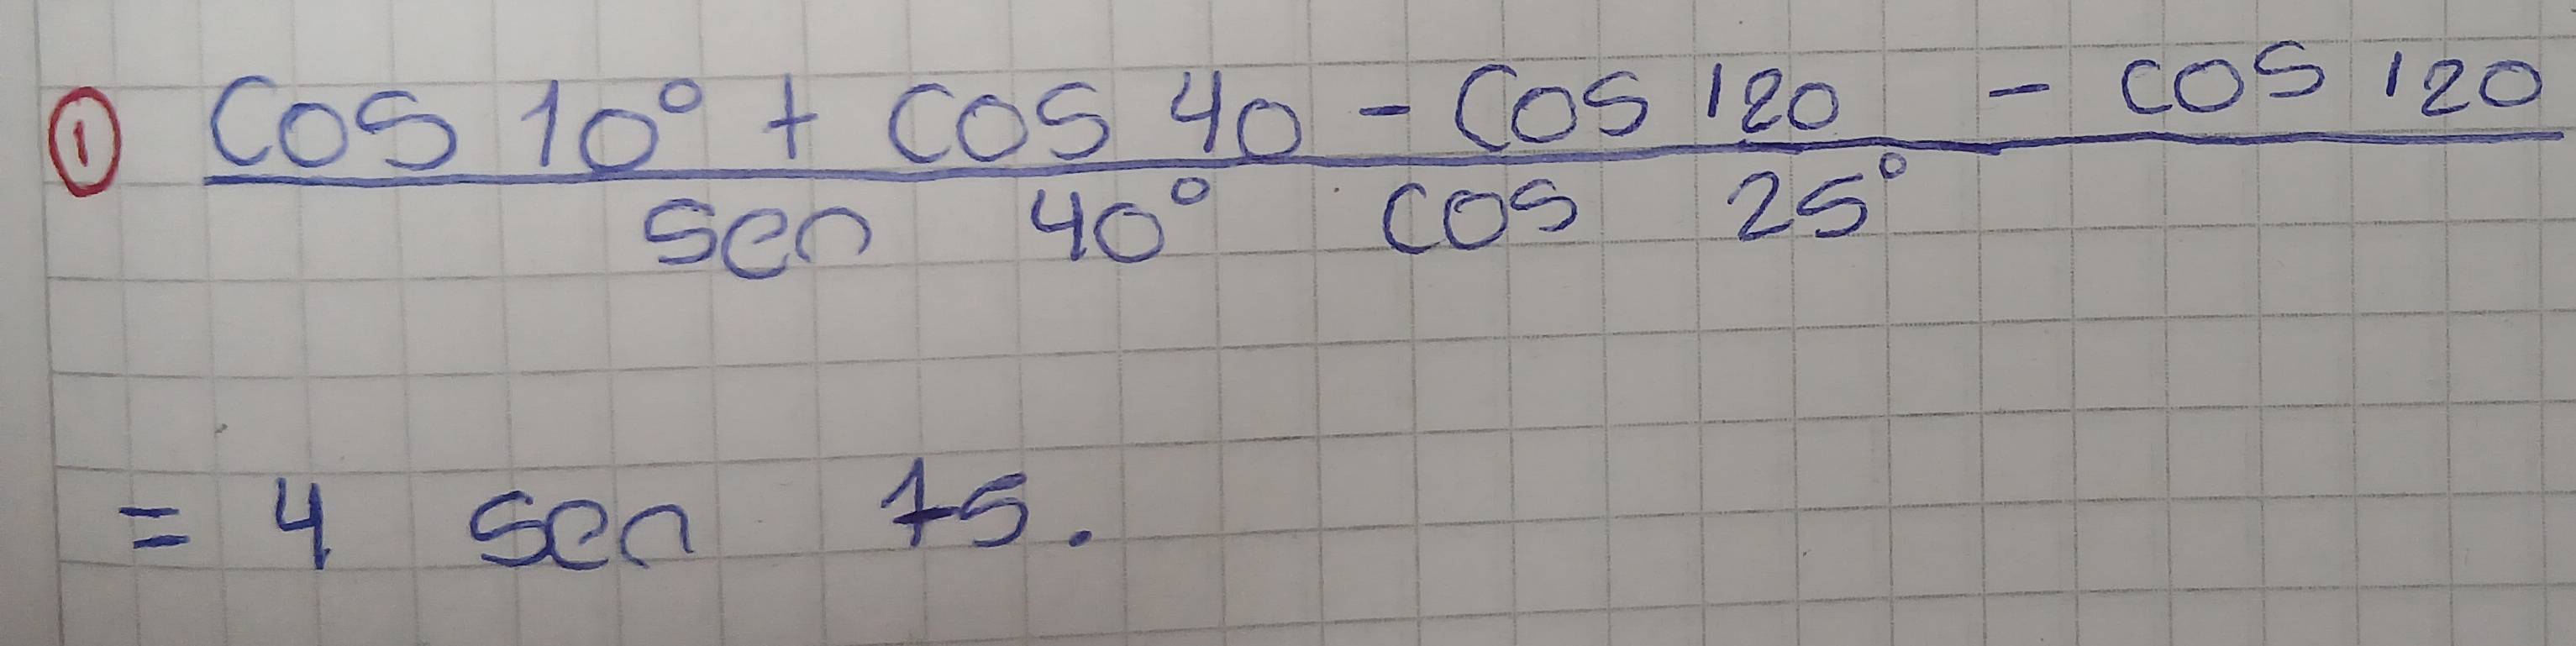 ① cos 10° + cos 40 - cos 120 - cos 120
sen 40° cos 25°
= 4 sen 75.